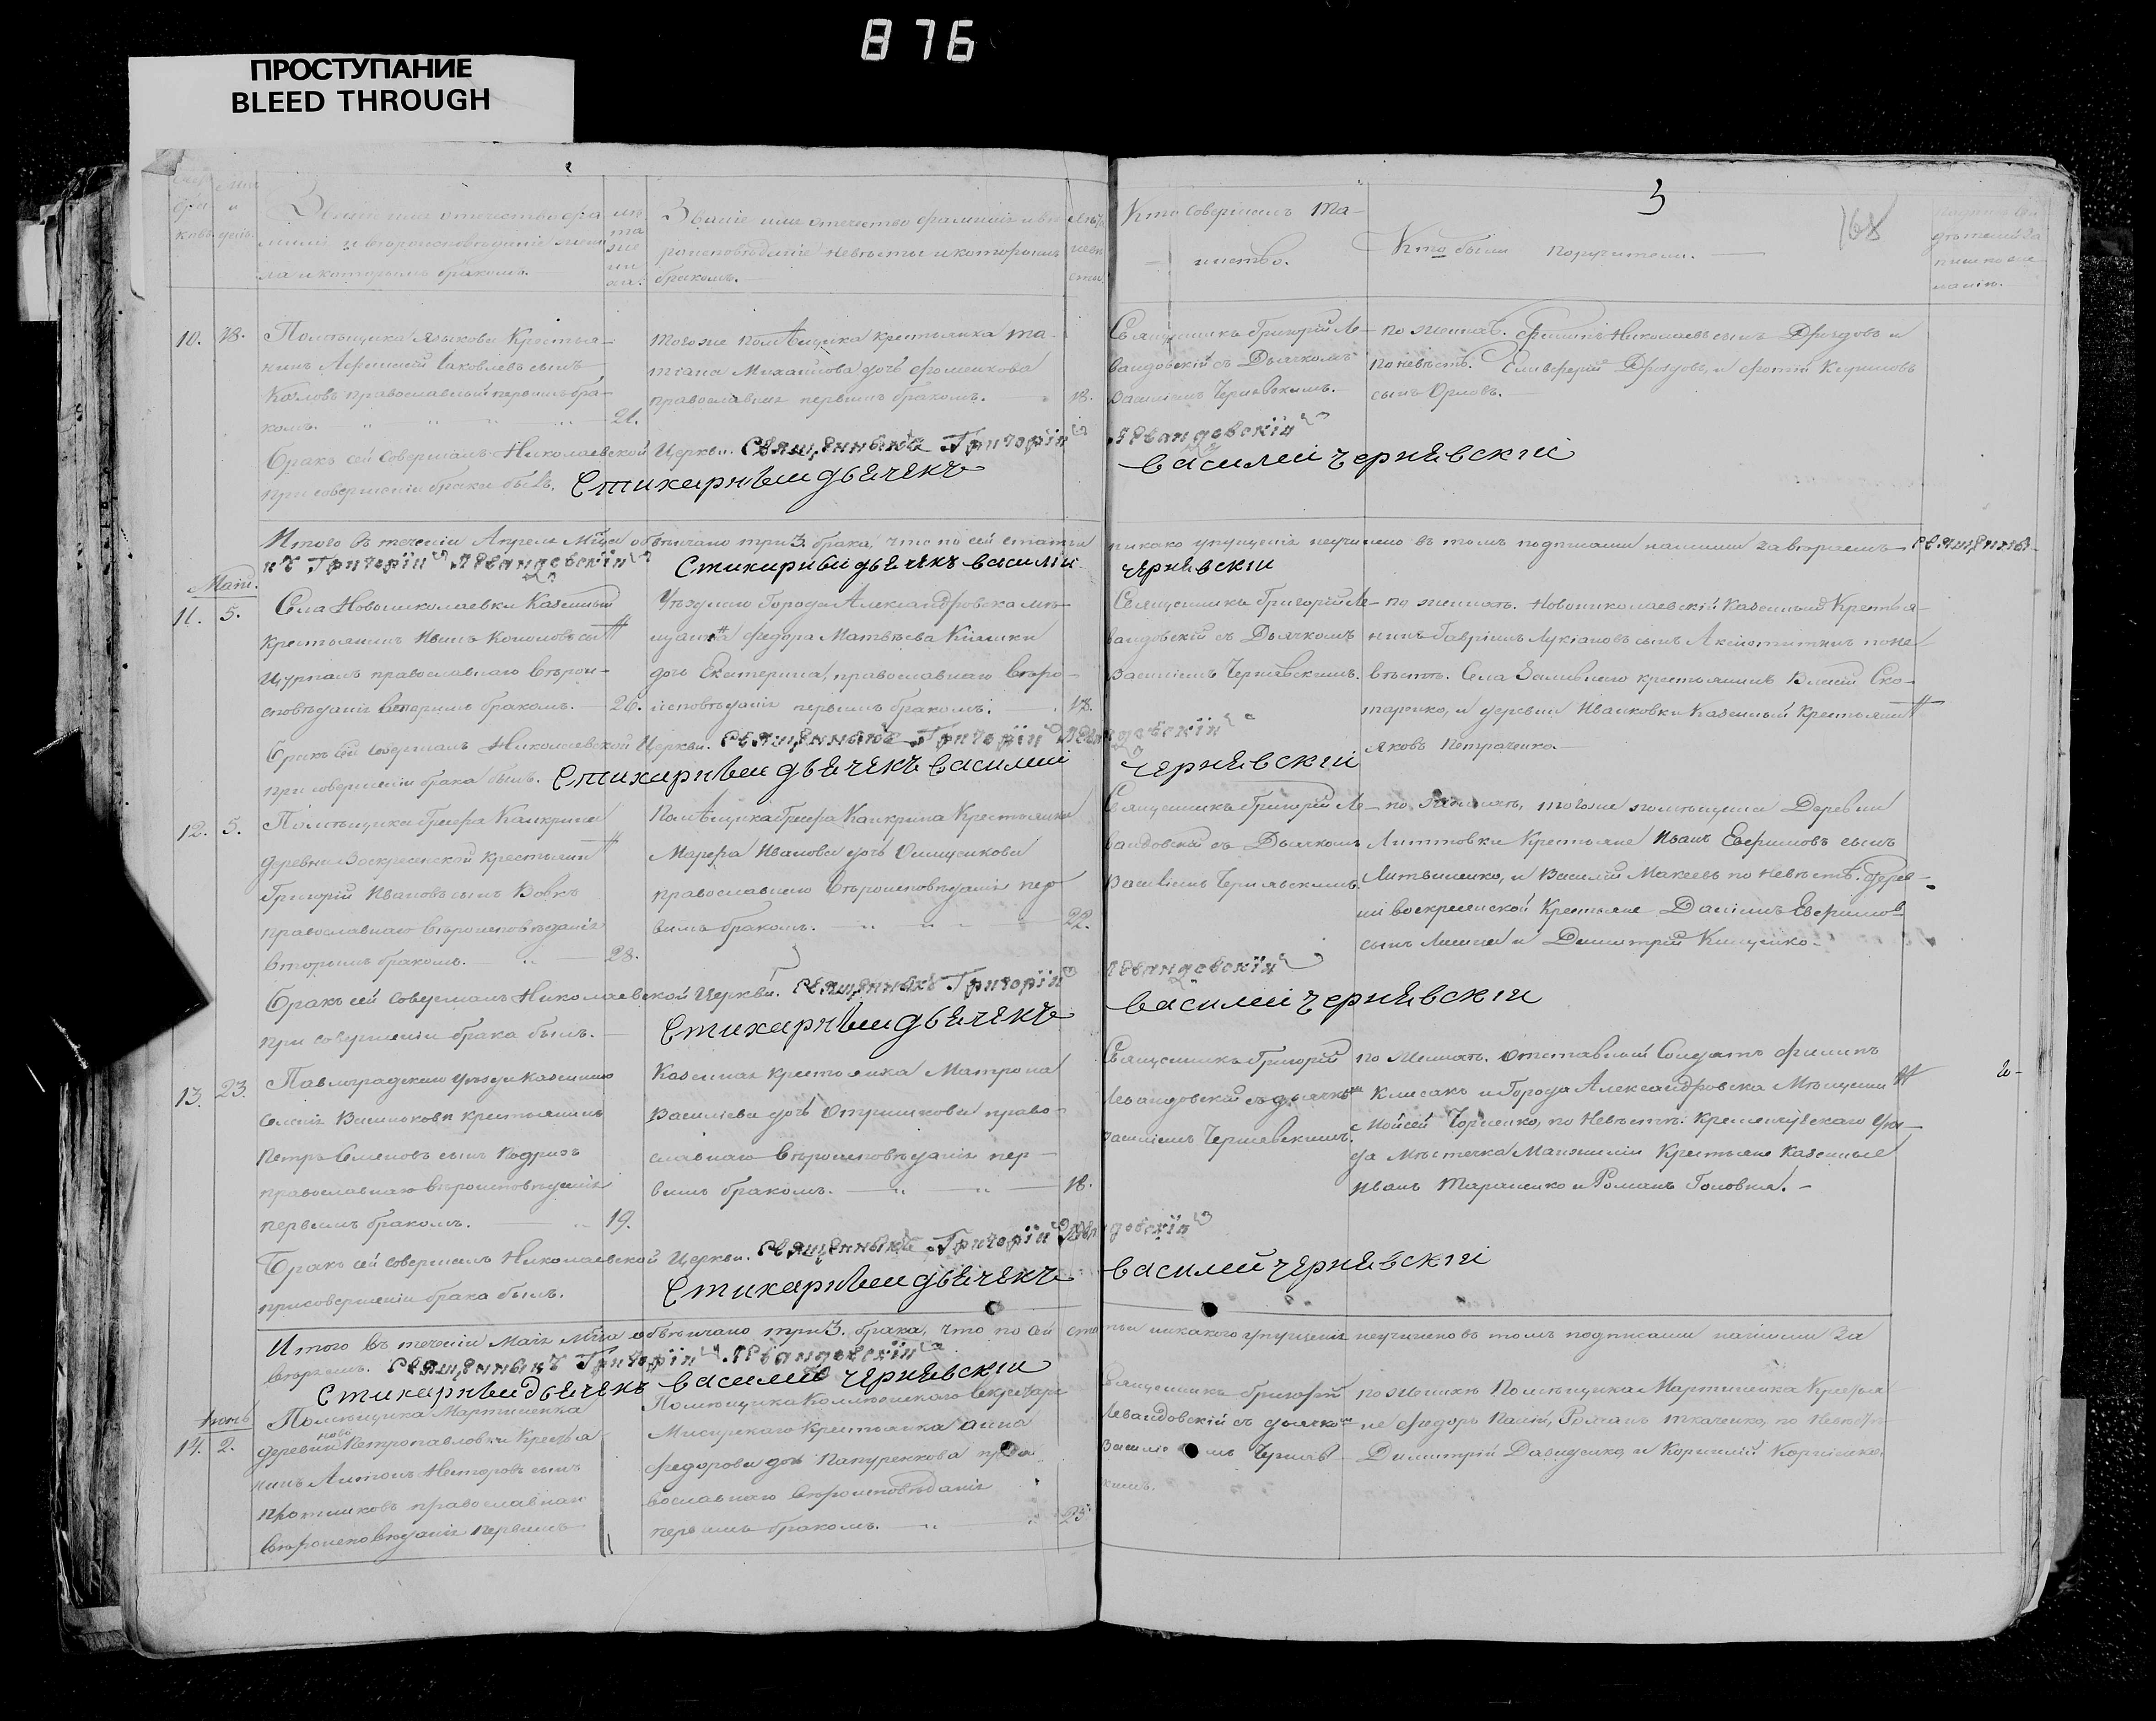 876
ПРОСТУПАНИЕ
BLEED THROUGH
3
168
Званіе имя отечество фа-
миліи и вѣроисповѣданіе жени-
ха и которымъ бракомъ.
Званіе имя отечество фамилія и вѣ-
роисповѣданіе невѣсты и которымъ
бракомъ.
Кто совершалъ Та-
инство.
Кто были поручители.
10. 28.
Помѣщика Языкова Крестья-
нинъ Афанасій Іаковлевъ сынъ
Козловъ православный первымъ бра-
комъ. 21.
Тогоже помѣщика крестьянка Та-
тіана Михайлова дочь Фоменкова
православная первымъ бракомъ. 18.
Священникъ Григорій Ле-
вандовскій съ Дьячкомъ
Василіемъ Чернявскимъ.
по женихѣ. Филипъ Николаевъ сынъ Дроздовъ и
по невѣстѣ. Елевферій Дроздовъ, и Фотій Кириловъ
сынъ Орловъ.
Бракъ сей совершалъ Николаевской Церкви. Священникъ Григорій Левандовскій
при совершеніи брака былъ. Стихарный дьячекъ Василий Чернявский
Итого въ теченіи Апреля Мѣца обвенчано три 3. брака, что по сей статьи никако упущенія неучинено въ томъ подписами нашими завѣряемъ Священни-
къ Григорій Левандовскій Стихарный дьячекъ Василій Чернявский
Маій.
11. 5.
Села Новониколаевки Казенный
Крестьянинъ Иванъ Кононовъ сынъ
Цурканъ православнаго вѣрои-
сповѣданія вторымъ бракомъ. 26.
Уѣзднаго Города Александровска мѣ-
щанина Федора Матвѣева
дочь Екатерина, православнаго вѣро-
исповѣданія первымъ бракомъ. 18.
Священникъ Григорій Ле-
вандовскій съ Дьячкомъ
Василіемъ Чернявскимъ.
по женихѣ. Новониколаевскій Казенный Крестья-
нинъ Гавріилъ Лукіановъ сынъ по не-
вѣстѣ. Села крестьянинъ Ско-
таренко, и деревни Иванковки Казенный Крестьянинъ
Яковъ Петраченко.
Бракъ сей совершалъ Николаевской Церкви. Священникъ Григорій Левандовскій
при совершеніи брака былъ. Стихарный дьячекъ Василий Чернявский
12. 5.
Помѣщика Графа Канкрина
деревни Воскресенской Крестьянинъ
Григорій Ивановъ сынъ Вовкъ
православнаго вѣроисповѣданія
вторымъ бракомъ. 28.
Помѣщика Графа Канкрина Крестьянка
Марфа Иванова дочь Онищенкова
православнаго вѣроисповѣданія пер-
вымъ бракомъ. 22.
Священникъ Григорій Ле-
вандовскій съ Дьячкомъ
Василіемъ Чернявскимъ.
по женихѣ, тогоже помѣщика Деревни
Крестьяне Иванъ Евфимовъ сынъ
Литвиненко, и Василій Макеевъ по невѣстѣ. Дерев-
ни Воскресенской Крестьяне Даніилъ Евфимовъ
сынъ и Димитрій Кищенко.
Бракъ сей совершалъ Николаевской Церкви. Священникъ Григорій Левандовскій
при совершеніи брака былъ. Стихарный дьячекъ Василий Чернявский
13. 23.
Павлоградскаго уѣзда казеннаго
селенія Васильковки крестьянинъ
Петръ Семеновъ сынъ
православнаго вѣроисповѣданія
первымъ бракомъ. 19.
Казенная крестьянка Матрона
Василіева дочь право-
славнаго вѣроисповѣданія пер-
вымъ бракомъ. 18.
Священникъ Григорій
Левандовскій съ дьячкомъ
Василіемъ Чернявскимъ.
по женихѣ. отставный Солдатъ Филипъ
Клисакъ и Города Александровска Мѣщанинъ
Мойсей по Невѣстѣ. Кременчугскаго уѣз-
да Мѣстечка Крестьяне Казенные
Иванъ Тараненко и Романъ Головня.
Бракъ сей совершалъ Николаевской Церкви. Священникъ Григорій Левандовскій
при совершеніи брака былъ. Стихарный дьячекъ Василий Чернявский
Итого въ теченіи Маія Мѣца обвѣнчано три 3. брака, что по сей статьи никакого упущенія неучинено въ томъ подписами нашими за
вѣряемъ. Священникъ Григорій Левандовскій
Стихарный дьячекъ Василий Чернявский
Іюнь
14. 2.
Помѣщика Мартиненка
деревни Ново Петропавловки Крестья-
нинъ Антонъ Несторовъ сынъ
православнаго
вѣроисповѣданія первымъ
Помѣщика Коллежскаго Секретаря
Крестьянка Анна
Федорова дочь Папуренкова пра-
вославнаго вѣроисповѣданія
первымъ бракомъ. 23.
Священникъ Григорій
Левандовскій съ дьячкомъ
Василіемъ Черняв-
скимъ.
по женихѣ Помѣщика Мартиненка Крестья-
не Федоръ Палій, Романъ Ткаченко, по Невѣстѣ
Димитрій Давиденко, и Корнилій Корніенко.